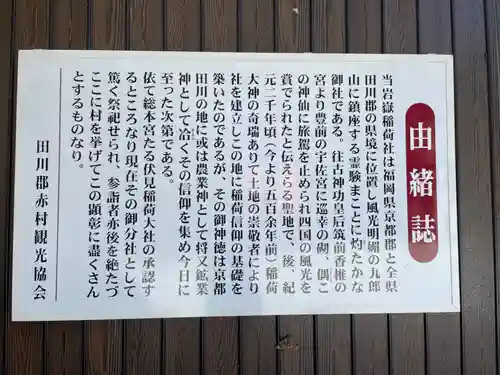 由緒誌
当岩嶽稲荷社は福岡県京都郡と全県
田川郡の県境に位置し風光明媚の九郎
山に鎮座する霊験まことに灼たかな
御社である。往古神功皇后筑前香椎の
宮より豊前の宇佐宮に巡幸の砌、偶こ
の神仙に旅駕を止められ四囲の風光を
賞でられたと伝えらる聖地で、後、紀
元二千年頃(今より五百余年前)稲荷
大神の奇瑞ありて土地の崇敬者により
社を建立しこの地に稲荷信仰の基礎を
築いたのであるが、その御神徳は京都
田川の地に或は農業神として将又鉱業
神として洽くその信仰を集め今日に
至った次第である。
依て総本宮たる伏見稲荷大社の承認す
るところなり現在その御分社として
篤く祭祀せられ、参詣者亦後を絶たづ
ここに村を挙げてこの顕彰に盡くさん
とするものなり。
田川郡赤村観光協会